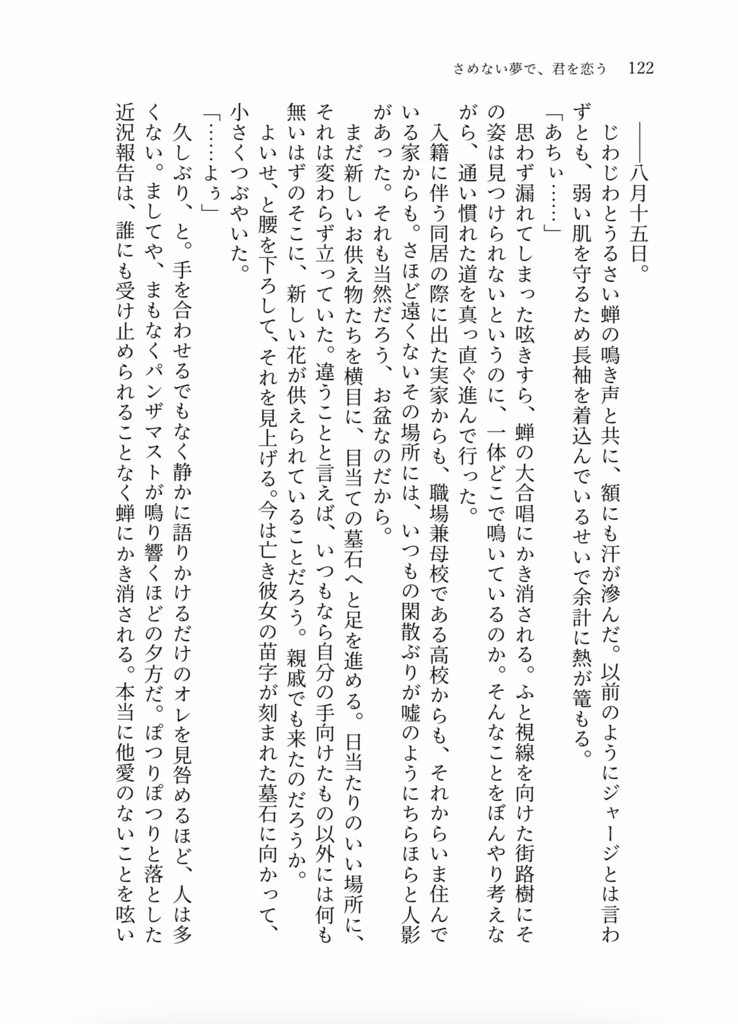 さめない夢で、君を恋う 122
――八月十五日。
じわじわとうるさい蝉の鳴き声と共に、額にも汗が滲んだ。以前のようにジャージとは言わ
ずとも、弱い肌を守るため長袖を着込んでいるせいで余計に熱が篭もる。
「あちぃ……」
思わず漏れてしまった呟きすら、蝉の大合唱にかき消される。ふと視線を向けた街路樹にそ
の姿は見つけられないというのに、一体どこで鳴いているのか。そんなことをぼんやり考えな
がら、通い慣れた道を真っ直ぐ進んで行った。
入籍に伴う同居の際に出た実家からも、職場兼母校である高校からも、それからいま住んで
いる家からも。さほど遠くないその場所には、いつもの閑散ぶりが嘘のようにちらほらと人影
があった。それも当然だろう、お盆なのだから。
まだ新しいお供え物たちを横目に、目当ての墓石へと足を進める。日当たりのいい場所に、
それは変わらず立っていた。違うことと言えば、いつもなら自分の手向けたもの以外には何も
無いはずのそこに、新しい花が供えられていることだろう。親戚でも来たのだろうか。
よいせ、と腰を下ろして、それを見上げる。今は亡き彼女の苗字が刻まれた墓石に向かって、
小さくつぶやいた。
「……よぅ」
久しぶり、と。手を合わせるでもなく静かに語りかけるだけのオレを見咎めるほど、人は多
くない。ましてや、まもなくパンザマストが鳴り響くほどの夕方だ。ぽつりぽつりと落とした
近況報告は、誰にも受け止められることなく蝉にかき消される。本当に他愛のないことを呟い